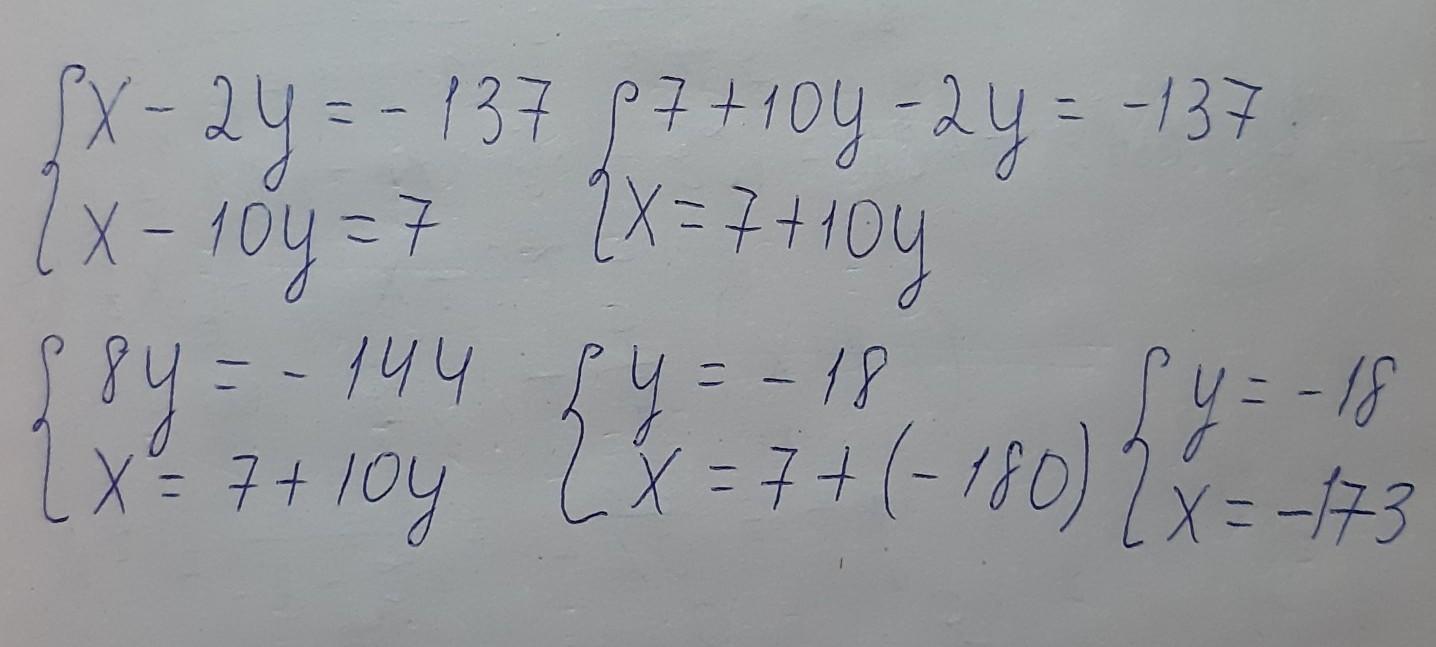 x - 2y = - 137
x - 10y = 7
7 + 10y - 2y = -137
x = 7 + 10y
8y = - 144
x = 7 + 10y
y = - 18
x = 7 + (- 180)
y = -18
x = -173